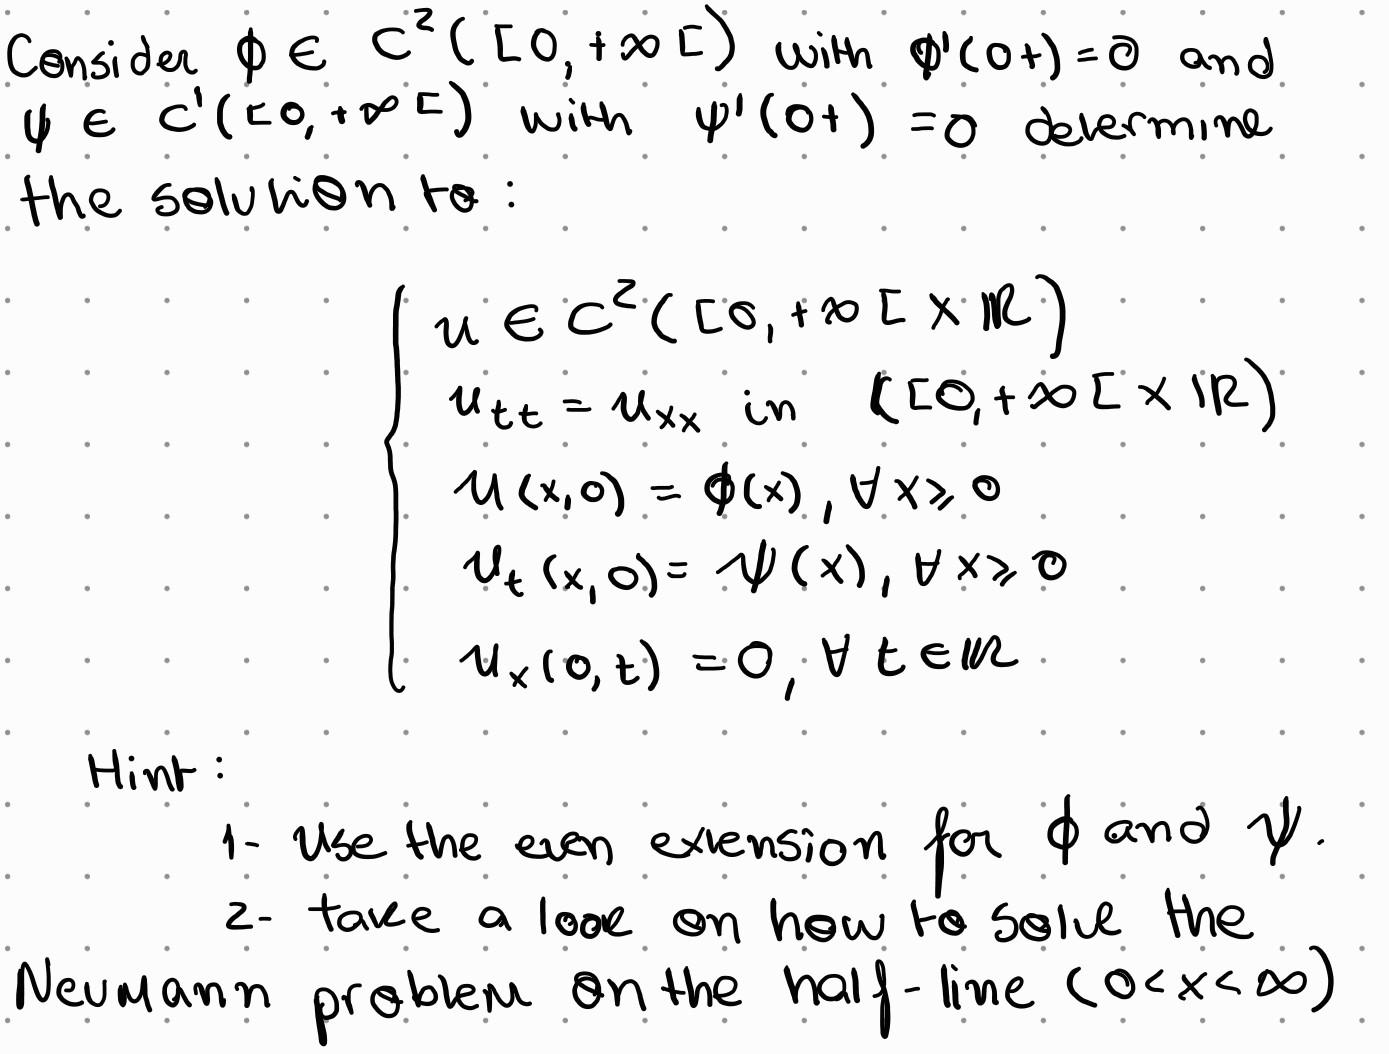 Consider ϕ ∈ C²([0,+∞[) with ϕ'(0+)=0 and
ψ ∈ C¹([0,+∞[) with ψ'(0+) =0 determine
the solution to :
u ∈ C²([0,+∞[ × ℝ)
u_tt = u_xx in ([0,+∞[ × ℝ)
u(x,0) = ϕ(x), ∀ x ⩾ 0
u_t(x,0) = ψ(x), ∀ x ⩾ 0
u_x(0,t) = 0, ∀ t ∈ ℝ
Hint :
1- Use the even extension for ϕ and ψ.
2- take a look on how to solve the
Neumann problem on the half-line (0<x<∞)